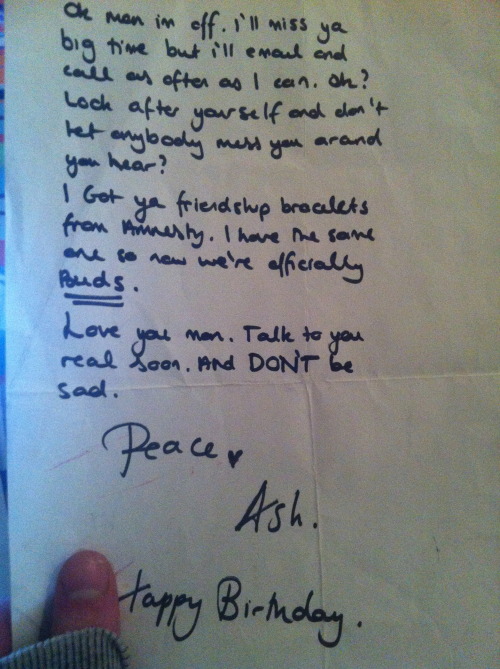 Ok man im off. I'll miss ya
big time but i'll email and
call as often as I can. Ok?
Look after yourself and don't
let anybody mess you arand
you hear?
I Got ya friendship bracelets
from Amnesty. I have the same
one so now we're officially
Buds.
Love you man. Talk to you
real soon. And DON'T be
sad.
Peace ♥
Ash.
Happy Birthday.